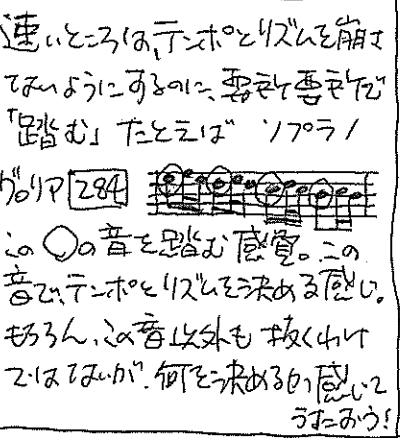 速いところは、テンポとリズムを崩さ
ないようにするのに、要所要所で
「踏む」 たとえば ソプラノ
グロリア 284
この○の音を踏む感覚。この
音で、テンポとリズムを決める感じ。
もちろん、この音以外も抜くわけ
ではないが、何を決めるか感じて
うたおう!